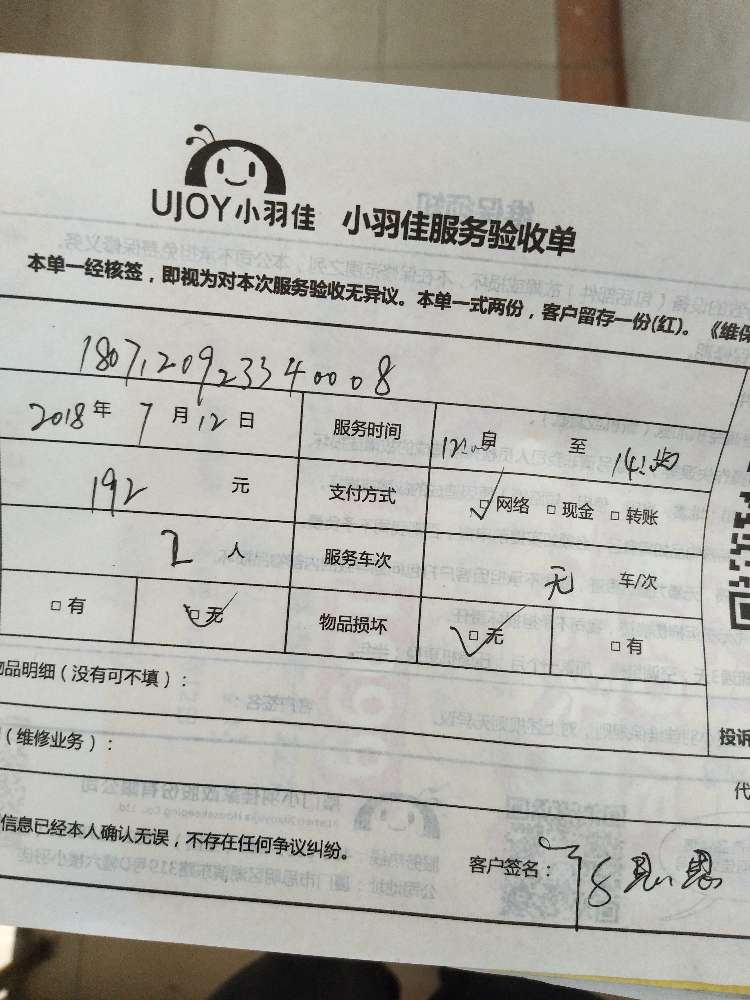 UJOY小羽佳 小羽佳服务验收单
本单一经核签，即视为对本次服务验收无异议。本单一式两份，客户留存一份(红)。《维保
1807120923340008
2018年 7月12日 服务时间 12:00 至 14:00
192 元 支付方式 ☑网络 □现金 □转账
2 人 服务车次 无 车/次
□有 ☑无 物品损坏 ☑无 □有
物品明细（没有可不填）：
（维修业务）： 投诉
代
信息已经本人确认无误，不存在任何争议纠纷。 客户签名：